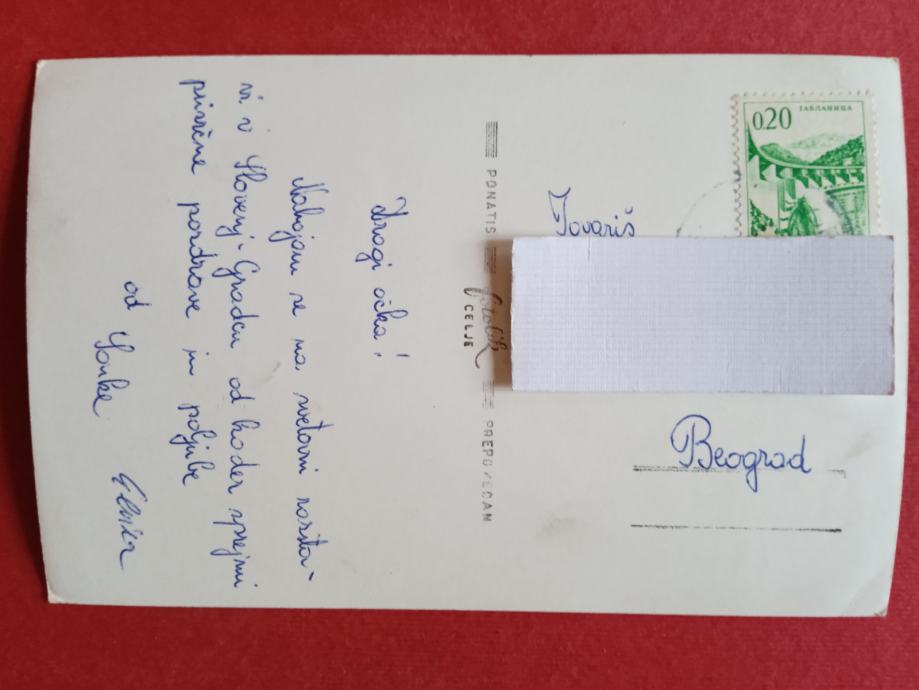 Dragi očka!
Nahajam se na svetovni razsta-
vi v Slovenj-Gradcu od koder sprejmi
prisrčne pozdrave in poljube
od Sonke
PONATIS
CELJE
PREPOVEDAN
0.20
ЈАБЛАНИЦА
Tovariš
Beograd